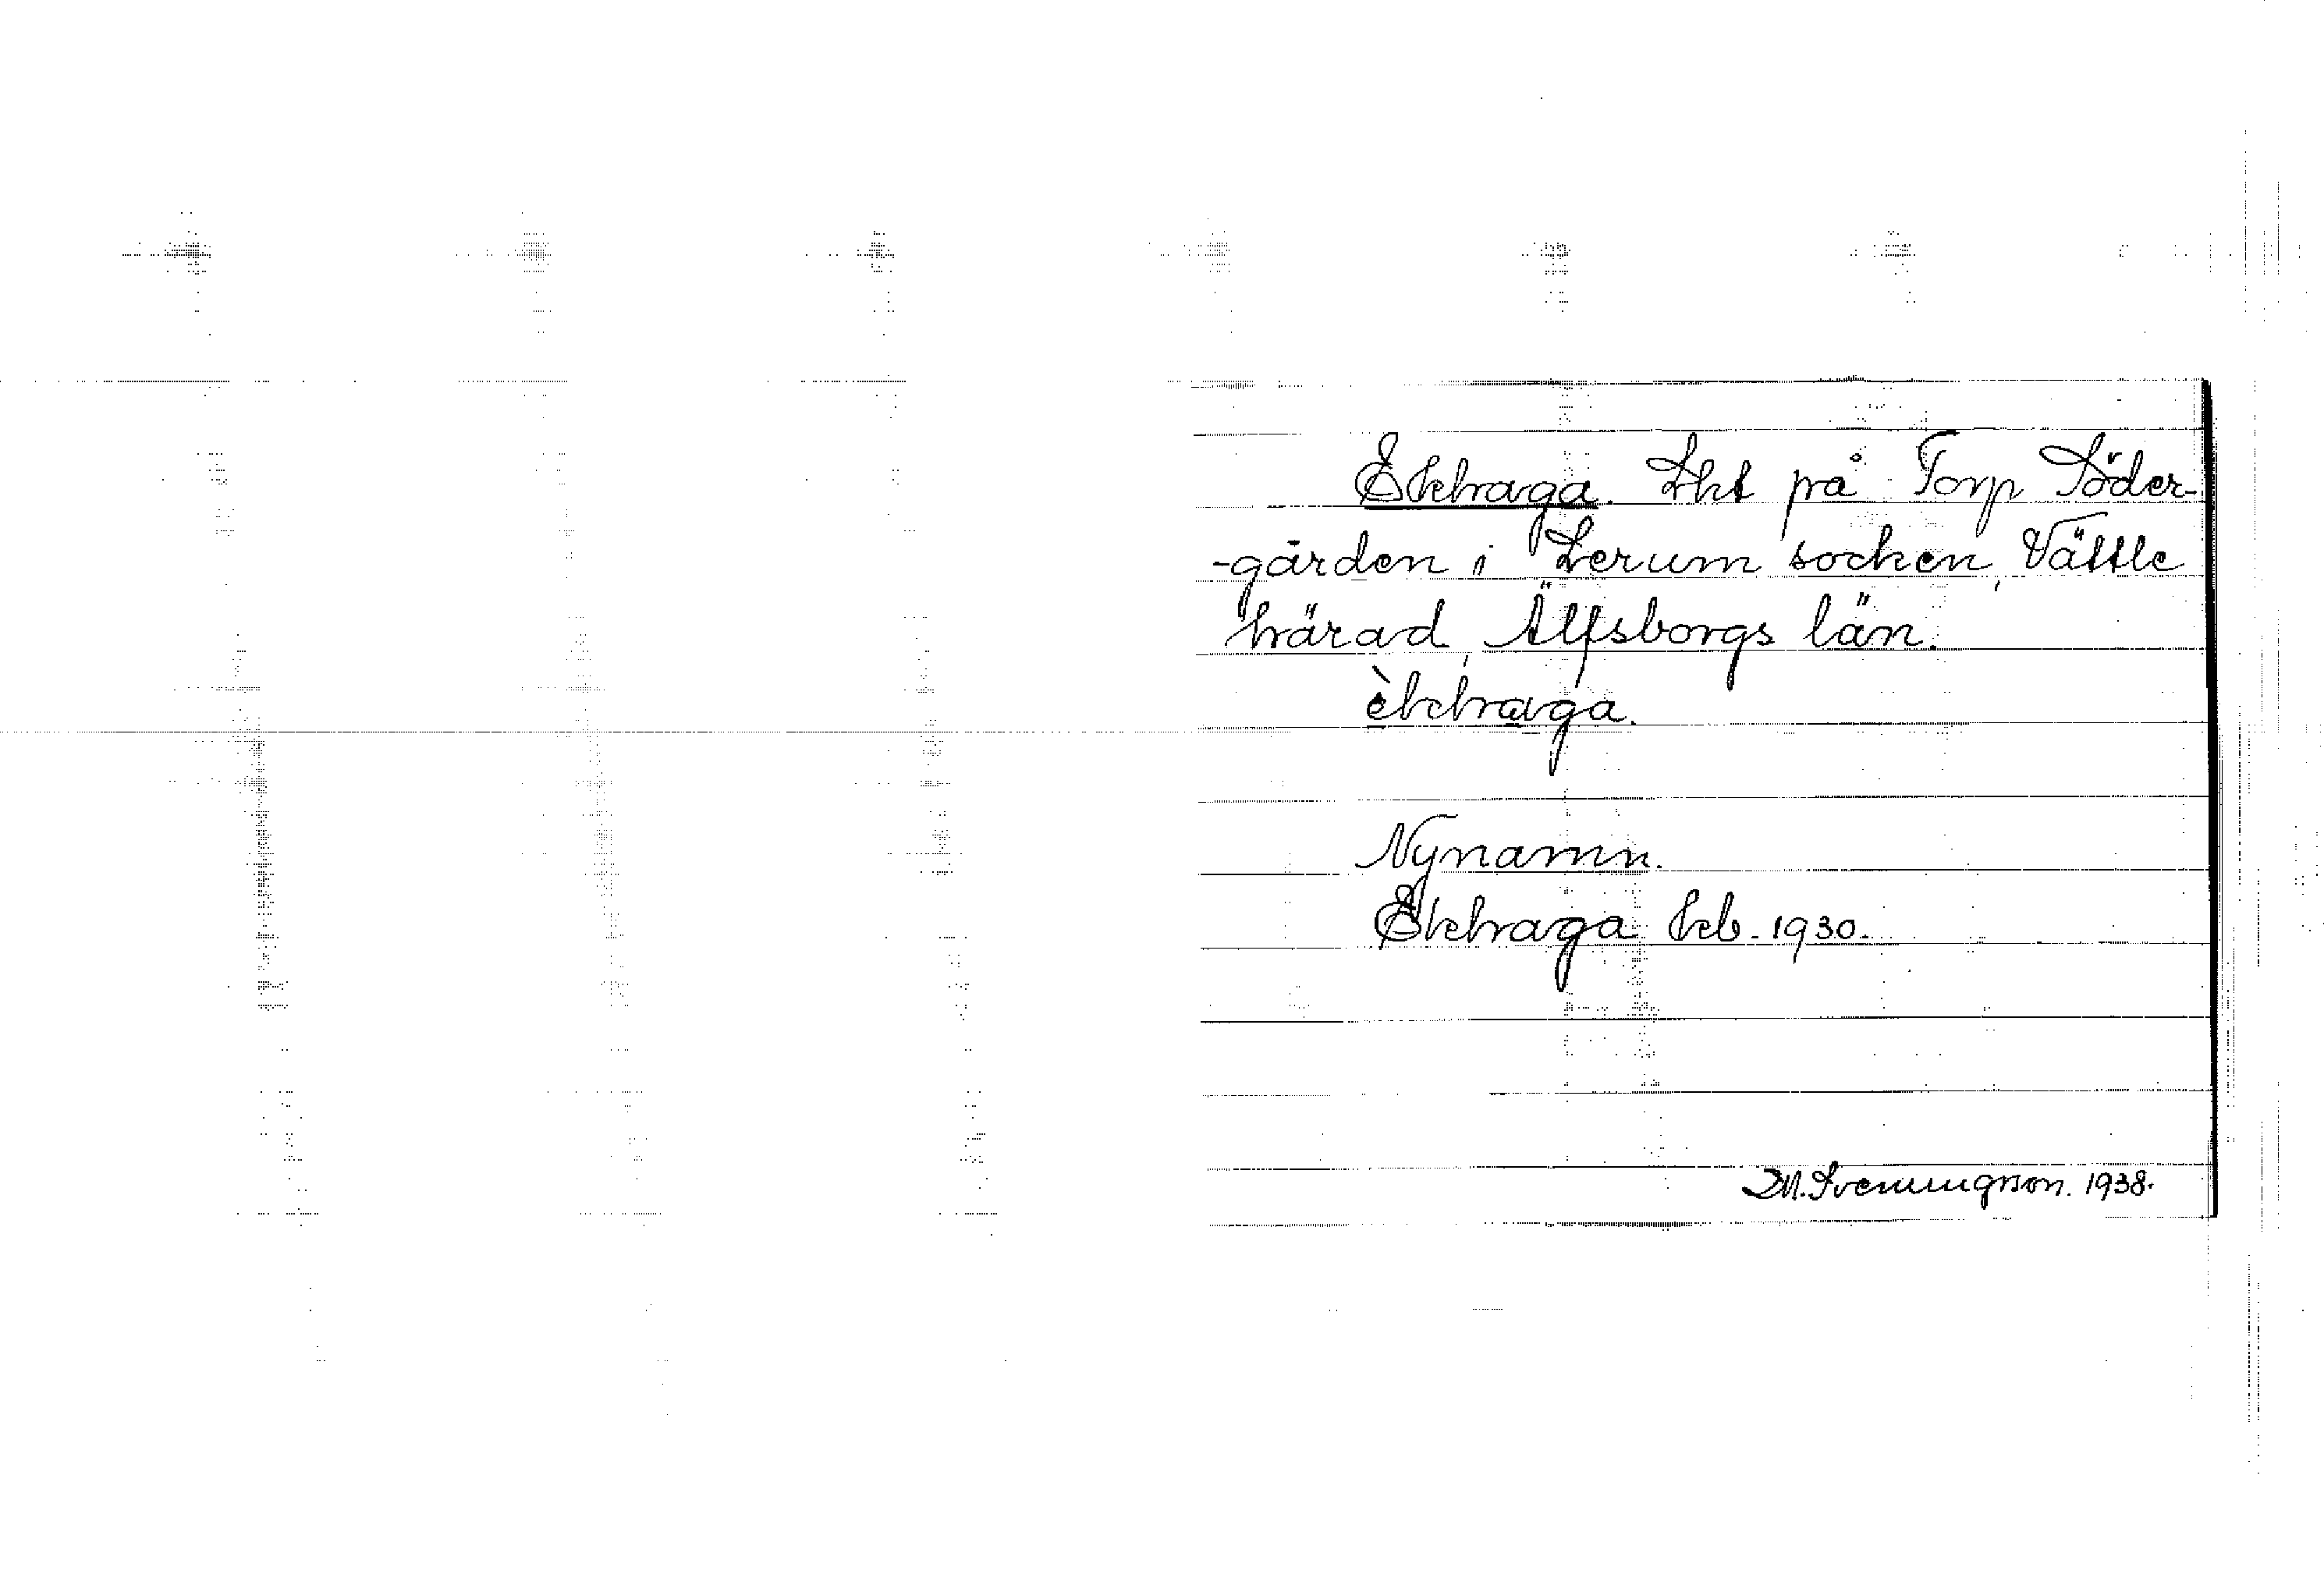 Ekehaga. Lht på Torp Söder-
-gården i Lerum socken, Vättle
härad, Älfsborgs län.
èkehaga.
Nynamn.
Ekehaga Kb. 1930.
M. Svenungsson. 1938.